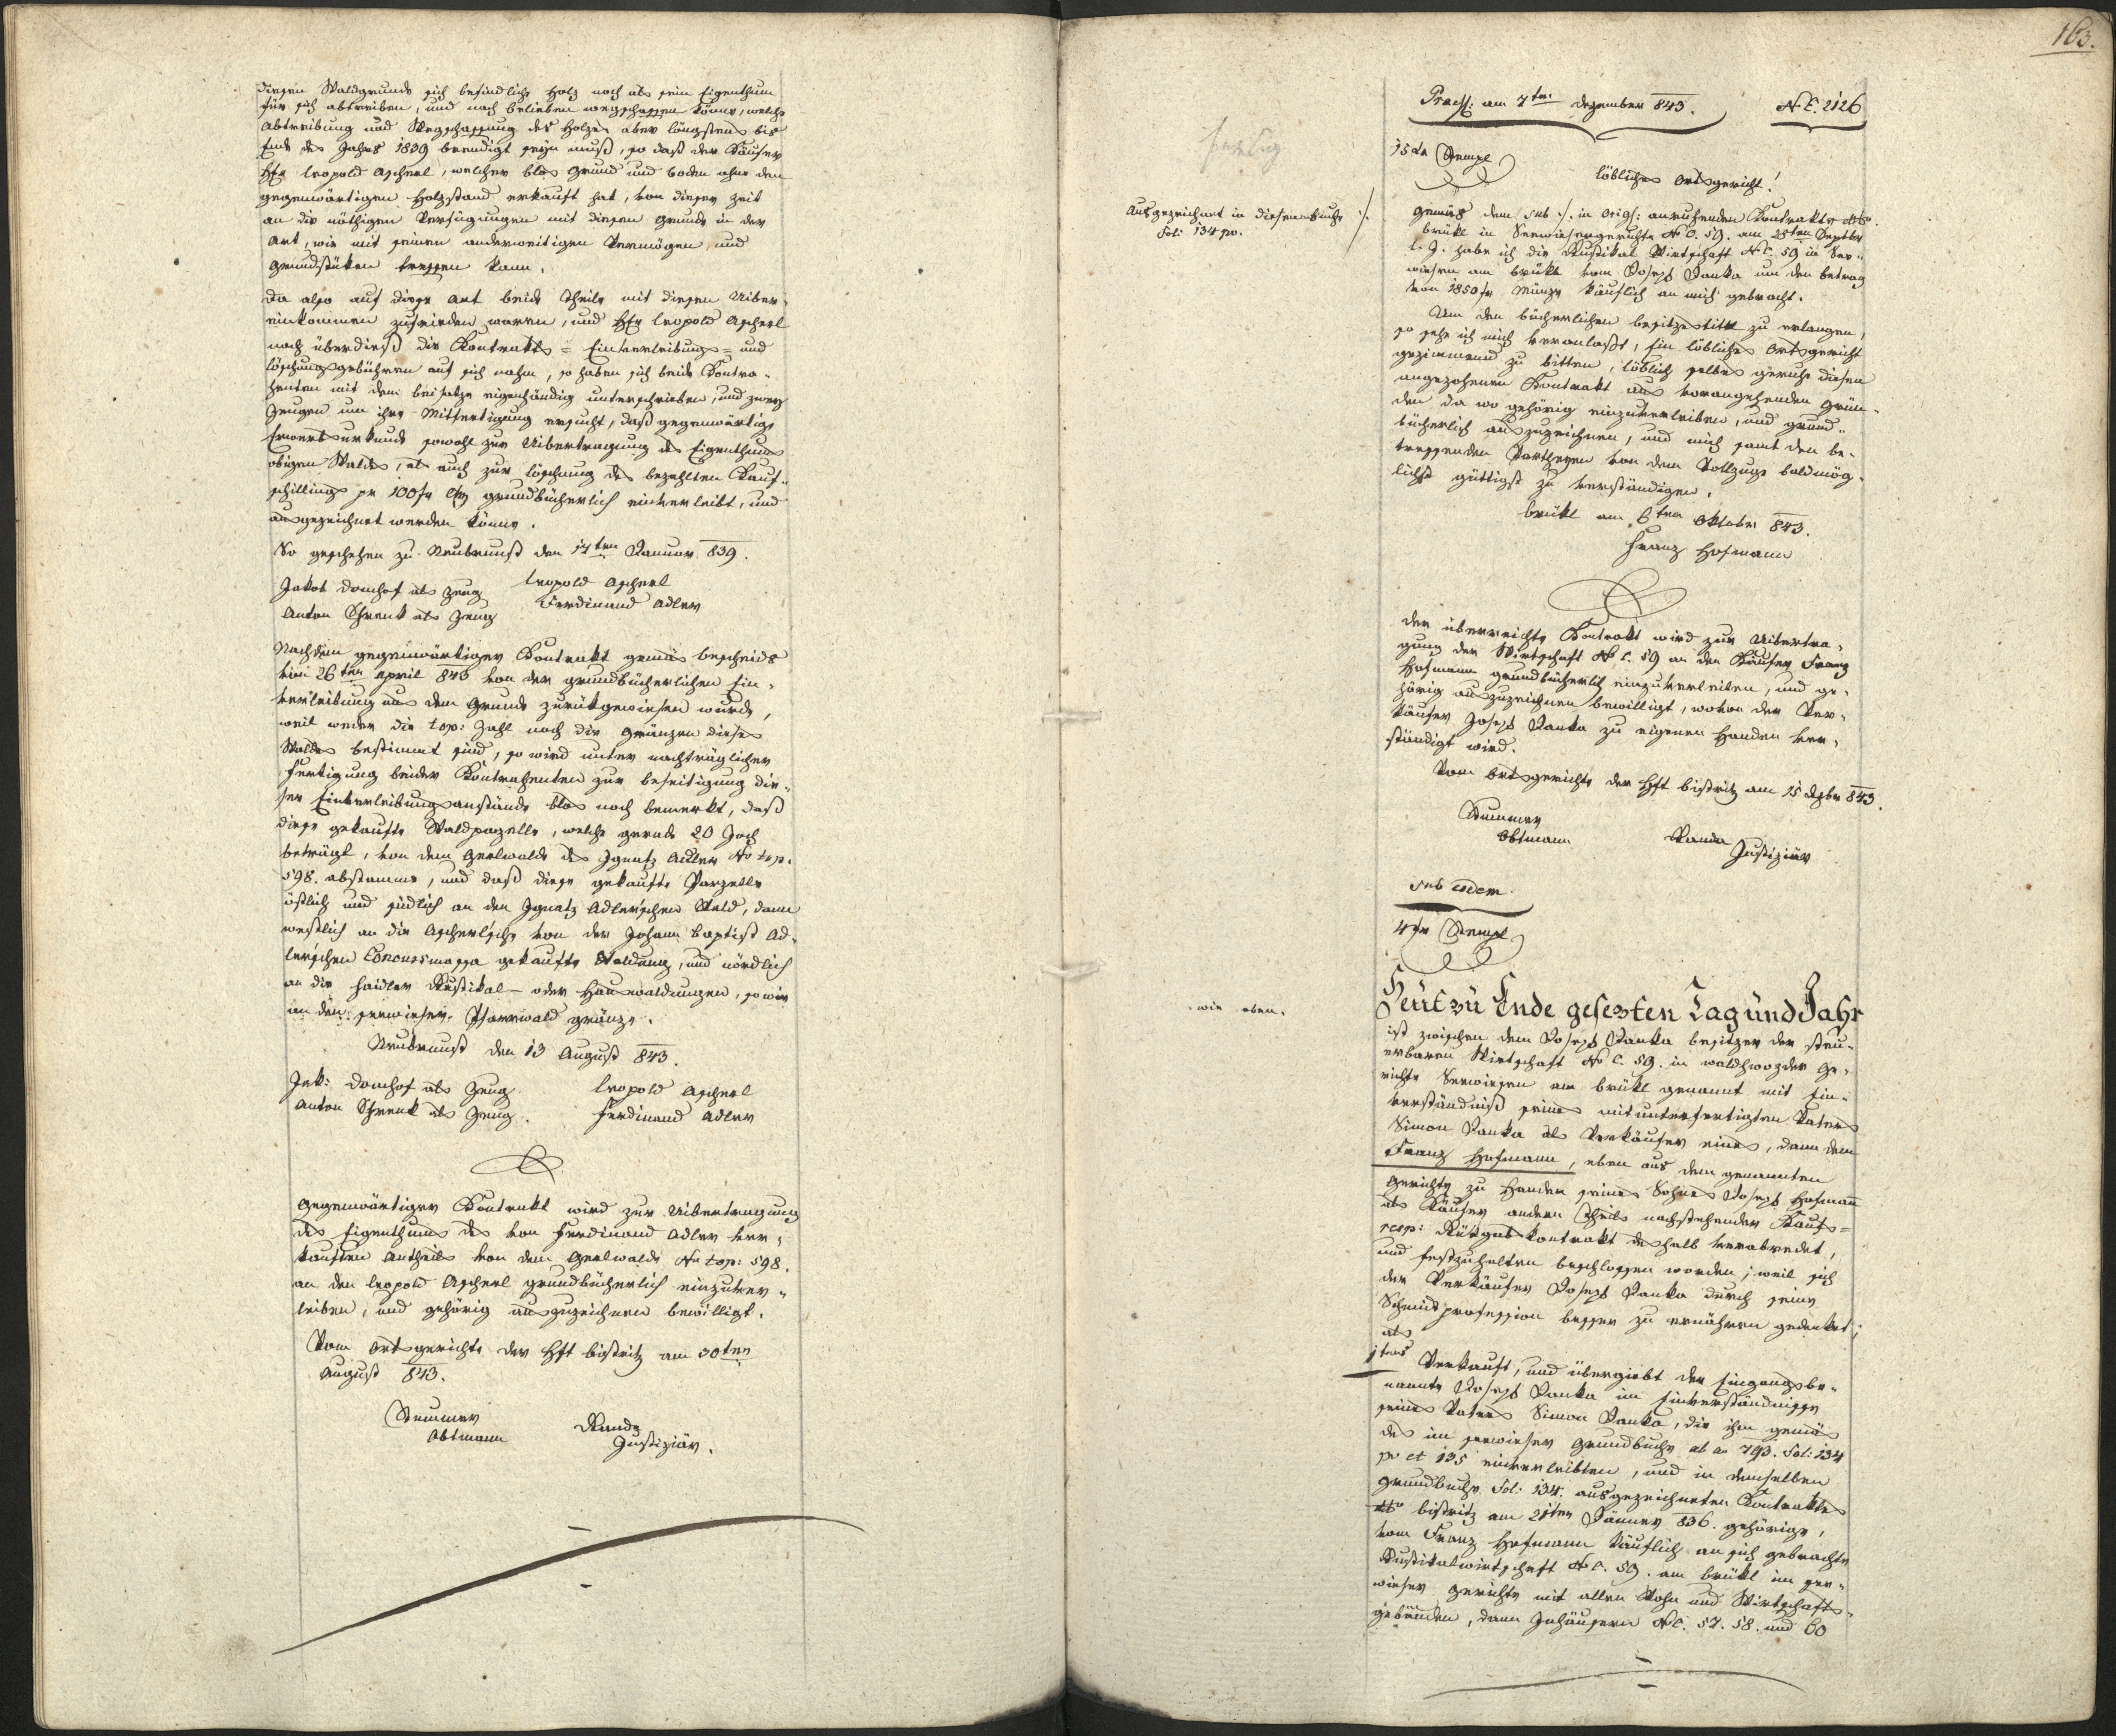 diesen Waldgrunde sich befindliche Holz noch als sein Eigenthum
für sich abtreiben, und nach belieben wegschaffen könne, welche
Abtreibung und Wegschaffung des Holzes aber längstens bis
Ende des Jahrs 1839 beendigt seyn muß, so daß der Käufer
Hr Leopold Ascherl, welcher blos Grund und boden ohne den
gegenwärtigen Holzstand erkauft hat, von dieser Zeit
an die nöthigen Verfügungen mit diesen Grunde in der
Art, wie mit seinen anderweitigen Vermögen und
Grundstüken treffen kann.
Da also auf diese Art beide Theile mit diesen Uiber-
einkommen zufrieden waren, und Hr Leopold Ascherl
noch überdieß die Kontrakts- Einverleibungs- und
Löschungsgebühren auf sich nahm, so haben sich beide Kontra-
henten mit dem beisatze eigenhändig unterschrieben, und zwey
Zeugen um ihre Mitfertigung ersucht, daß gegenwärtige
Erwerbsurkunde sowohl zur Uibertragung des Eigenthums
obigen Waldes, als auch zur Löschung des bezahlten Kauf-
schillings pr 100 fr CM grundbücherlich einverleibt, und
ausgezeichnet werden könne.
So geschehen zu Neubrunst den 17ten Januar 839.
Jakob Domhof als Zeug
Leopold Ascherl
Anton Schrenk als Zeug
Ferdinand Adler
Nachdem gegenwärtiger Kontrakt gemäs bescheids
vom 26ten April 843 von der grundbücherlichen Ein-
verleibung aus dem Grunde zurükgewiesen wurde,
weil weder die top: Zahl noch die Gränzen dieses
Waldes bestimmt sind, so wird unter nachträglicher
Fertigung beider Kontrahenten zur beseitigung die-
ser Einverleibungsanstände blos noch bemerkt, daß
diese gekaufte Waldparzelle, welche gerade 20 Joch
beträgt, von dem Gerlwalde des Ignatz Adler No top:
598. abstamme, und daß diese gekaufte Parzelle
östlich und südlich an den Ignatz Adlerschen Wald, dann
westlich an die Ascherlsche von der Johann Baptist Ad-
lerschen Concursmassa gekaufte Waldung, und nördlich
an die Haidler Rustikal- oder Hauswaldungen, so wie
an den seewieser Pfarrwald gränze.
Neubrunst den 13 August 843.
Jak: Domhof als Zeug
Leopold Ascherl
Anton Schrenk als Zeug.
Ferdinand Adler
Gegenwärtiger Kontrakt wird zur Uibertragung
des Eigenthums des von Ferdinand Adler ver-
kauften Antheils von dem Gerlwalde No top: 598.
an den Leopold Ascherl grundbücherlich einzuver-
leiben, und gehörig auszuzeichnen bewilligt.
Vom Ortsgerichte der Hft bistritz am 30ten
August 843.
Stummer
Obtmann
Randa
Justiziär.
163.
Praes: am 7ten Dezember 843. NE. 2126
15 xr Stempl
Löbliches Ortsgericht!
Ausgezeichnet in diesem buche
Fol: 134 pv.
Gemäs dem sub ./. in Orig: anruhenden Kontrakte dto
brükl in Seewiesengerichte No C. 59. am 28ten Septber
l. J. habe ich die Rustikal Wirtschaft No C. 59 in See-
wiesen am brükl vom Joseph Janka um den betrag
von 1850 fr Münze käuflich an mich gebracht.
Um den bücherlichen besitzestittl zu erlangen,
so sehe ich mich veranlaßt, Ein löbliches Ortsgericht
geziemend zu bitten, löblich selbes geruhe diesen
angezohenen Kontrakt aus vorangehenden Grün-
den da wo gehörig einzuverleiben, und grund-
bücherlich auszuzeichnen, und mich samt den be-
treffenden Partheyen von dem Vollzuge baldmög-
lichst güttigst zu verständigen.
brükl am 6ten Oktober 843.
Franz Hofmann
Der überreichte Kontrakt wird zur Uibertra-
gung der Wirtschaft No C. 59 an den Käufer Franz
Hofmann grundbücherlich einzuverleiben, und ge-
hörig auszuzeichnen bewilligt, wovon der Ver-
käufer Joseph Janka zu eigenen Handen ver-
ständigt wird.
Vom Ortsgerichte der Hft bistritz am 15 Dzbr 843.
Stummer
Obtmann
Randa
Justiziär
sub eodem
4 fr Stempl
wie oben.
Heut zu Ende gesezten Tag und Jahr
ist zwischen dem Joseph Janka besitzer der steu-
erbaren Wirtschaft No C. 59. in waldhwozder Ge-
richte Seewiesen am brükl genannt mit Ein-
verständniß seines mitunterfertigten Vaters
Simon Janka als Verkäufer eines, dann dem
Franz Hofmann, eben aus dem genannten
Gerichte zu Handen seines Sohnes Joseph Hofmann
als Käufer andern Theils nachstehender Kaufs-
resp: Rükgabskontrakt deshalb verabredet,
und festzuhalten beschlossen worden; weil sich
der Verkäufer Joseph Janka durch seine
Schmidprofession besser zu ernähren gedenket;
als
1tens Verkauft, und übergiebt der Eingangsbe-
nannte Joseph Janka im Einverständnisse
seines Vaters Simon Janka, die ihm gemäs
des im seewieser Grundbuche ab ao 793. Fol: 134
pv et 135 einverleibten, und in demselben
Grundbuche Fol: 134. ausgezeichneten Kontraktes
dto bistritz am 21ten Jänner 836. gehörige,
vom Franz Hofmann käuflich an sich gebrachte
Rustikalwirtschaft No C. 59. am brükl im see-
wieser Gerichte mit allen Wohn und Wirtschafts-
gebäuden, dann Inhäusern No C. 57. 58. und 60